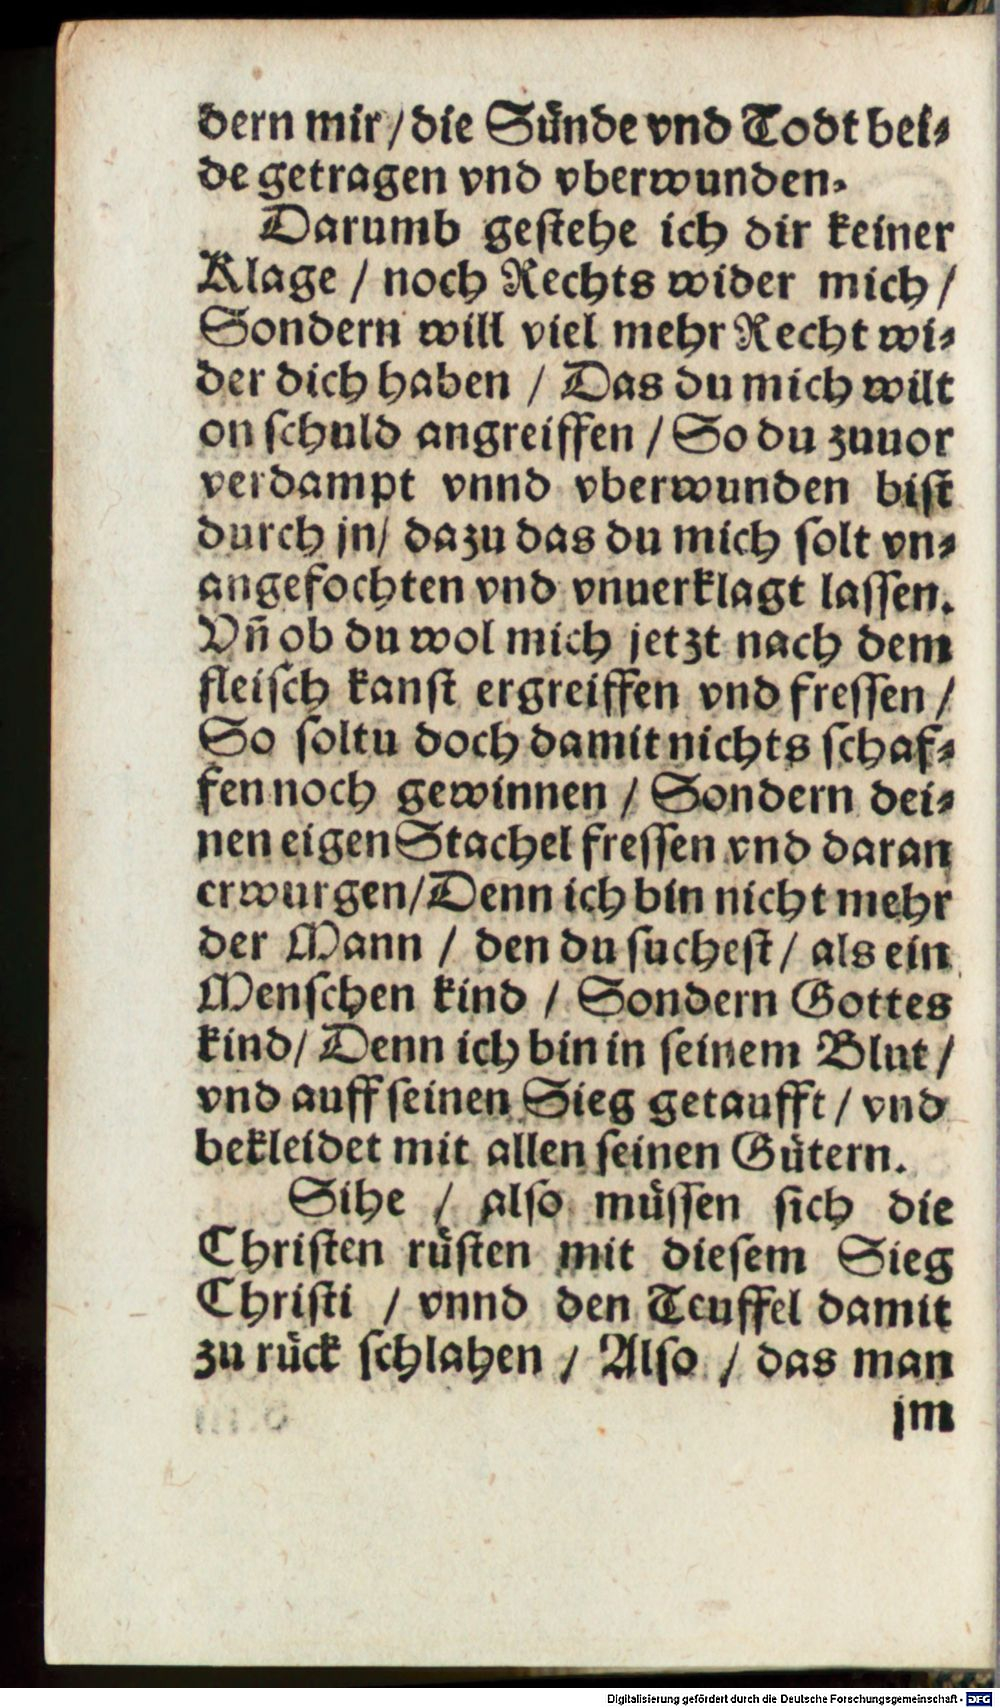 dern mir / die Sünde vnd Todt bei⸗
de getragen vnd vberwunden.
Darumb gestehe ich dir keiner
Klage / noch Rechts wider mich /
Sondern will viel mehr Recht wi⸗
der dich haben / Das du mich wilt
on schuld angreiffen / So du zuuor
verdampt vnnd vberwunden bist
durch jn / dazu das du mich solt vn⸗
angefochten vnd vnuerklagt lassen.
Vñ ob du wol mich jetzt nach dem
fleisch kanst ergreiffen vnd fressen /
So soltu doch damit nichts schaf⸗
fen noch gewinnen / Sondern dei⸗
nen eigen Stachel fressen vnd daran
erwurgen / Denn ich bin nicht mehr
der Mann / den du suchest / als ein
Menschen kind / Sondern Gottes
kind / Denn ich bin in seinem Blut /
vnd auff seinen Sieg getaufft / vnd
bekleidet mit allen seinen Gütern.
Sihe / also müssen sich die
Christen rüsten mit diesem Sieg
Christi / vnnd den Teuffel damit
zu rück schlahen / Also / das man
jm
Digitalisierung gefördert durch die Deutsche Forschungsgemeinschaft - DFG